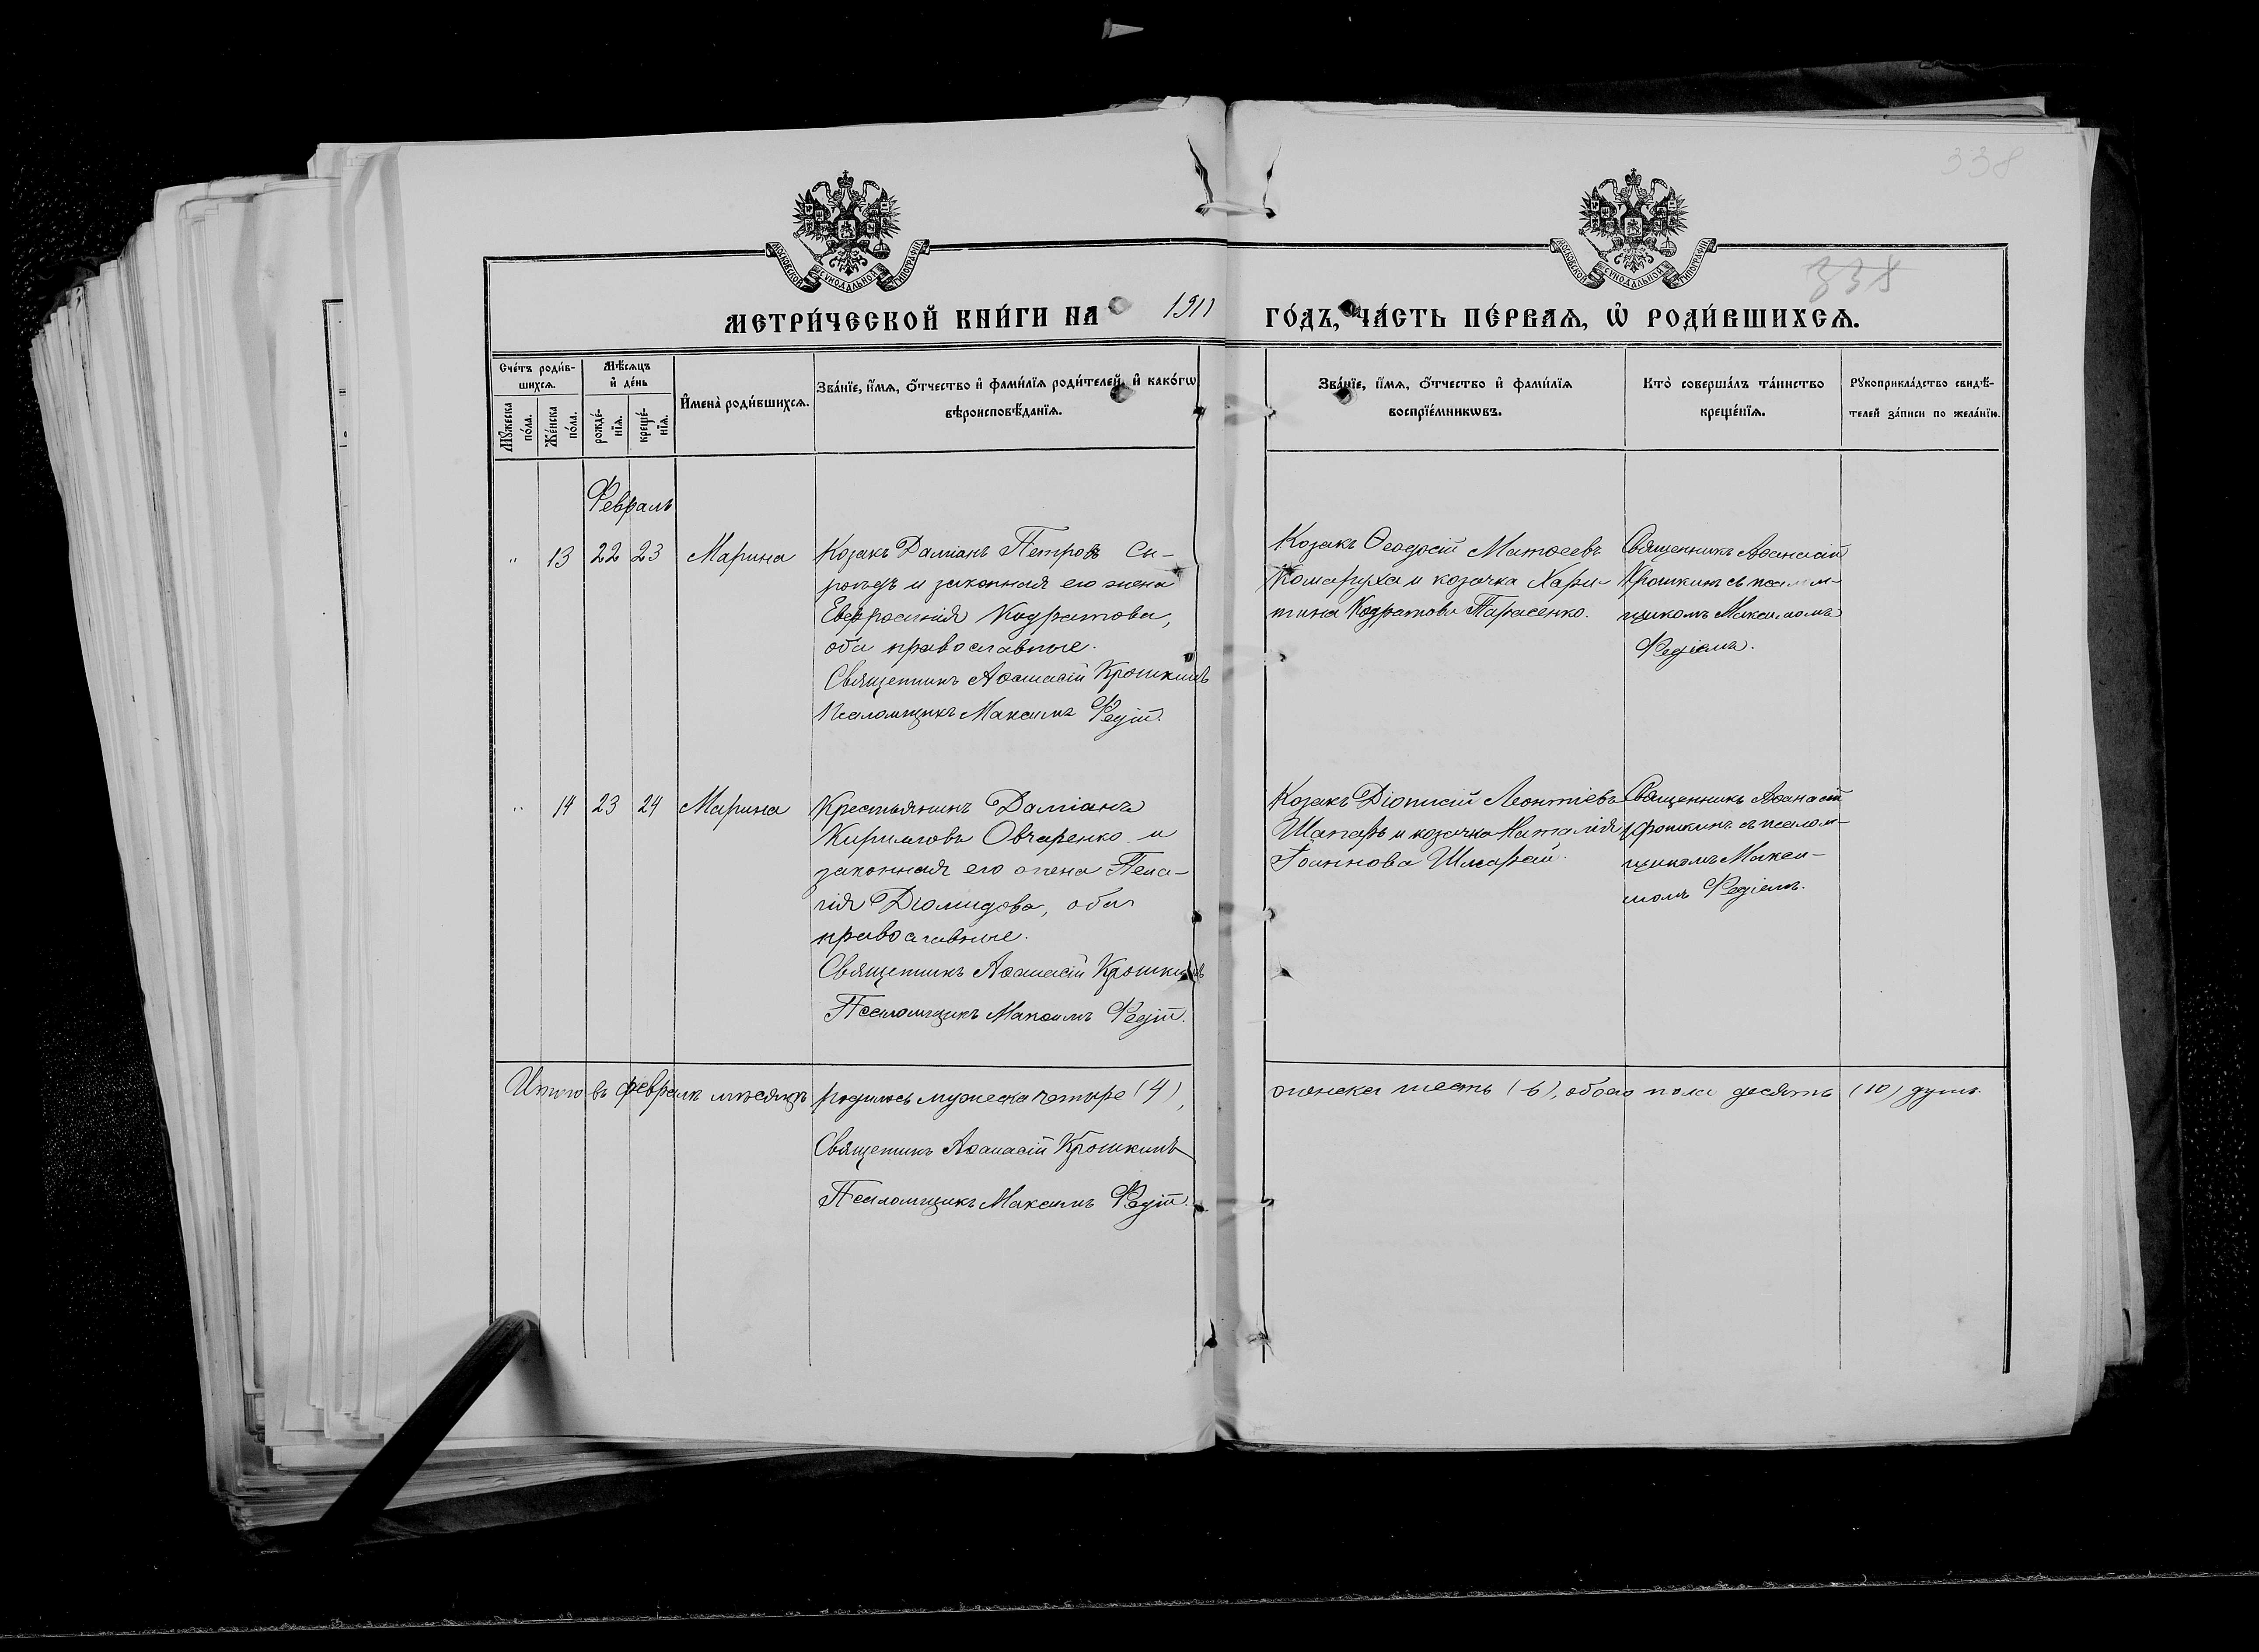 338
338
МОСКОВСКОЙ СѴНОДАЛЬНОЙ ТИПОГРАФІИ
МОСКОВСКОЙ СѴНОДАЛЬНОЙ ТИПОГРАФІИ
МЕТРИ́ЧЕСКОЙ КНИ́ГИ НА 1911 ГО́ДЪ, ЧА́СТЬ ПЕ́РВАЯ, Ѡ҆ РОДИ́ВШИХСЯ.
Сче́тъ роди́в-
шихсѧ.
Мꙋ́жеска
по́ла.
Же́нска
по́ла.
Мѣ́сѧцъ
и҆ де́нь
рожде́-
нїѧ.
креще́-
нїѧ.
И҆мена̀ роди́вшихсѧ.
Зва́нїе, и҆́мѧ, ѻ҆́тчество и҆ фами́лїѧ роди́телей, и҆ како́гѡ
вѣроисповѣ́данїѧ.
Зва́нїе, и҆́мѧ, ѻ҆́тчество и҆ фами́лїѧ
воспрїе́мникѡвъ.
Кто̀ соверша́лъ та́инство
креще́нїѧ.
Рꙋкоприкла́дство свидѣ́-
телей за́писи по жела́нїю.
Февраль
" 13 22 23 Марина
Козакъ Даміанъ Петровъ Си-
и законная его жена
Евфросинія Кодратова,
оба православные.
Священникъ Аѳанасій Крошкинъ
Псаломщикъ Максимъ Редій.
Козакъ Ѳеодосій Матѳеевъ
Комаруха и козачка Хари-
тина Кодратова Тарасенко.
Священникъ Аѳанасій
Крошкинъ съ псалом-
щикомъ Максимомъ
Редіемъ.
" 14 23 24 Марина
Крестьянинъ Даміанъ
Кирилловъ Овчаренко и
законная его жена Пела-
гія Діомидова, оба
православные.
Священникъ Аѳанасій Крошкинъ
Псаломщикъ Максимъ Редій.
Козакъ Діонисій Леонтіевъ
Шапаръ и козачка Наталія
Іоаннова
Священникъ Аѳанасій
Крошкинъ съ псалом-
щикомъ Макси-
момъ Редіемъ.
Итого въ февралѣ мѣсяцѣ родилось мужеска четыре (4), женска шесть (6), обоего пола десять (10) душъ.
Священникъ Аѳанасій Крошкинъ
Псаломщикъ Максимъ Редій.